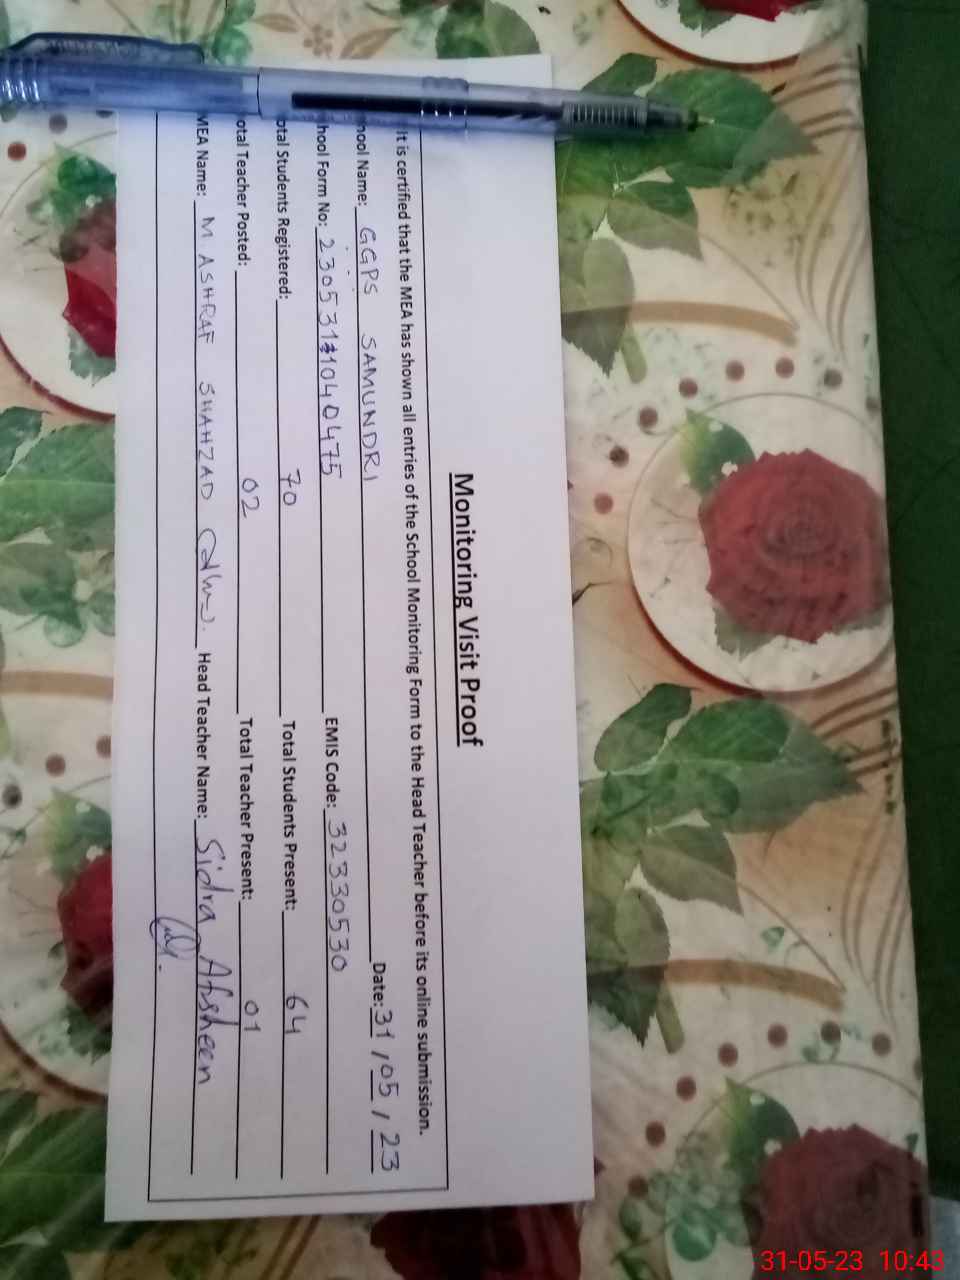 Monitoring Visit Proof
It is certified that the MEA has shown all entries of the School Monitoring Form to the Head Teacher before its online submission.
hool Name: GGPS SAMUNDRI Date: 31 / 05 / 23
hool Form No: 23053111040475 EMIS Code: 32330530
otal Students Registered: 70 Total Students Present: 64
otal Teacher Posted: 02 Total Teacher Present: 01
MEA Name: M ASHRAF SHAHZAD Head Teacher Name: Sidra Afsheen
31-05-23 10:43